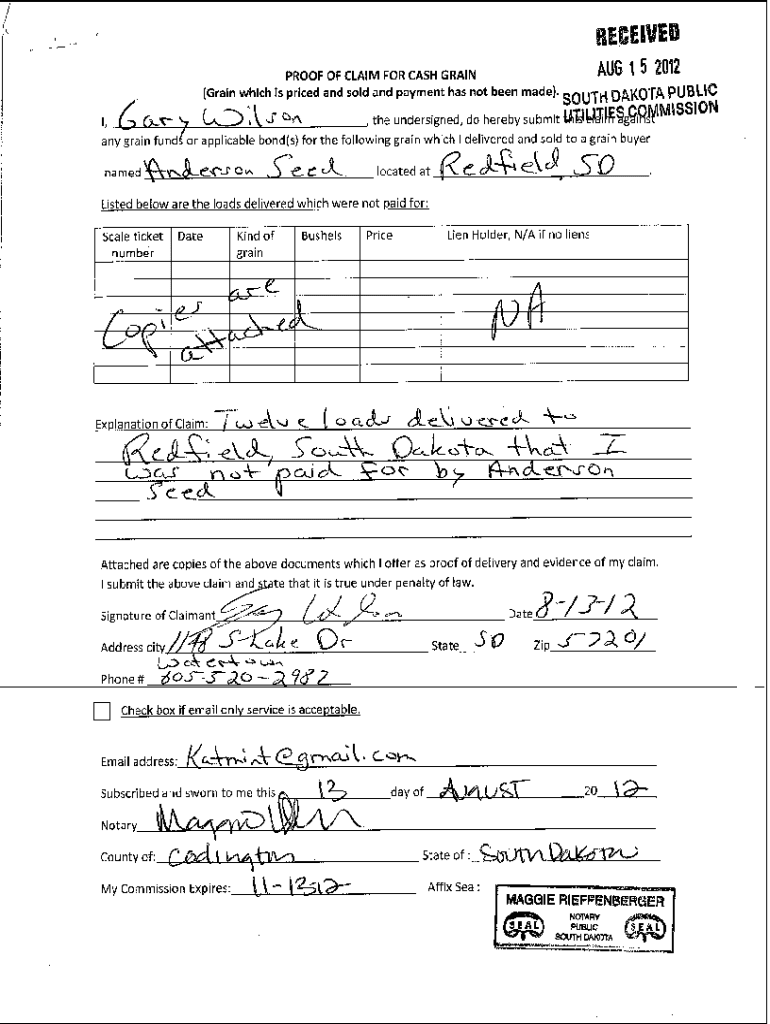 RECEIVED
AUG 15 2012
SOUTH DAKOTA PUBLIC
UTILITIES COMMISSION
PROOF OF CLAIM FOR CASH GRAIN
(Grain which is priced and sold and payment has not been made).
I, Gary Wilson, the undersigned, do hereby submit this claim against
any grain funds or applicable bond(s) for the following grain which I delivered and sold to a grain buyer
named Anderson Seed located at Redfield, SD.
Listed below are the loads delivered which were not paid for:
Scale ticket number Date Kind of grain Bushels Price Lien Holder, N/A if no liens
Copies are attached NA
Explanation of Claim: Twelve loads delivered to
Redfield, South Dakota that I
was not paid for by Anderson
Seed
Attached are copies of the above documents which I offer as proof of delivery and evidence of my claim.
I submit the above claim and state that it is true under penalty of law.
Signature of Claimant Gary Wilson Date 8-13-12
Address city 1178 S Lake Dr State SD Zip 57201
Watertown
Phone # 605-520-2982
Check box if email only service is acceptable.
Email address: Katmint@gmail.com
Subscribed and sworn to me this 13 day of AUGUST 20 12
Notary Maggie
County of: Codington State of: South Dakota
My Commission Expires: 11-13-12 Affix Seal:
MAGGIE RIEFFENBERGER
NOTARY
SEAL PUBLIC SEAL
SOUTH DAKOTA